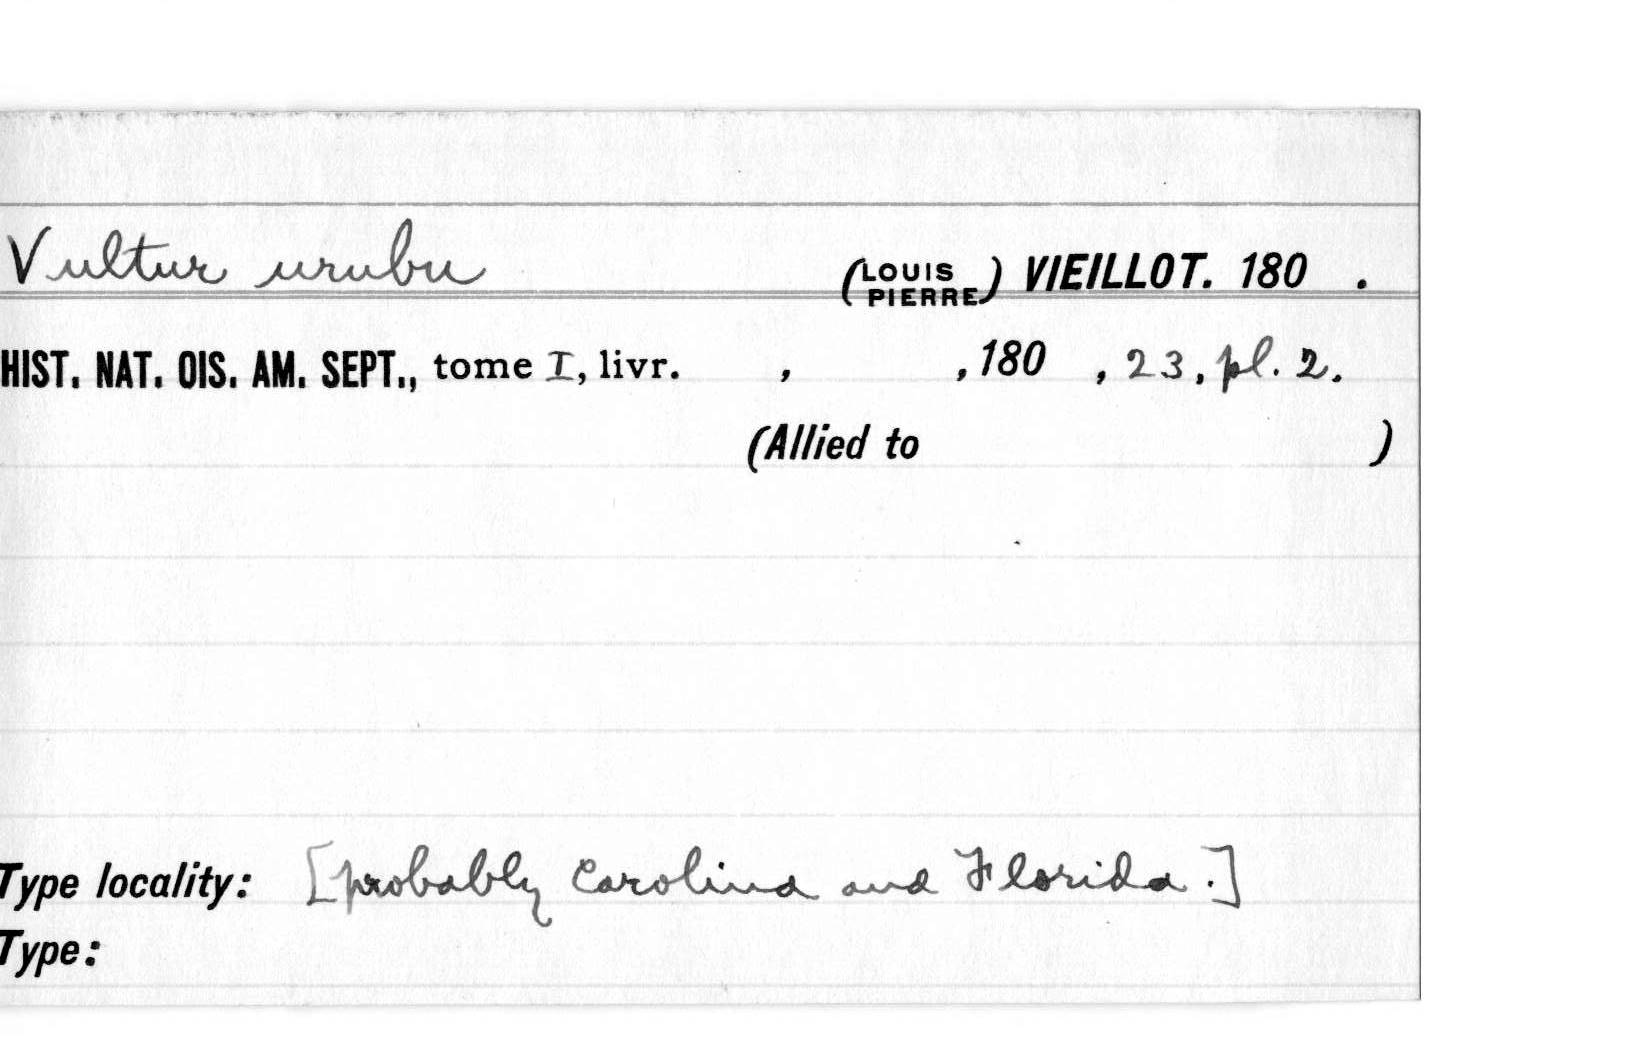 Vultur urubu (LOUIS PIERRE) VIEILLOT. 180 .
HIST. NAT. OIS. AM. SEPT., tome I, livr. , , 180 , 23, pl. 2.
(Allied to )
Type locality: [probably Carolina and Florida.]
Type: